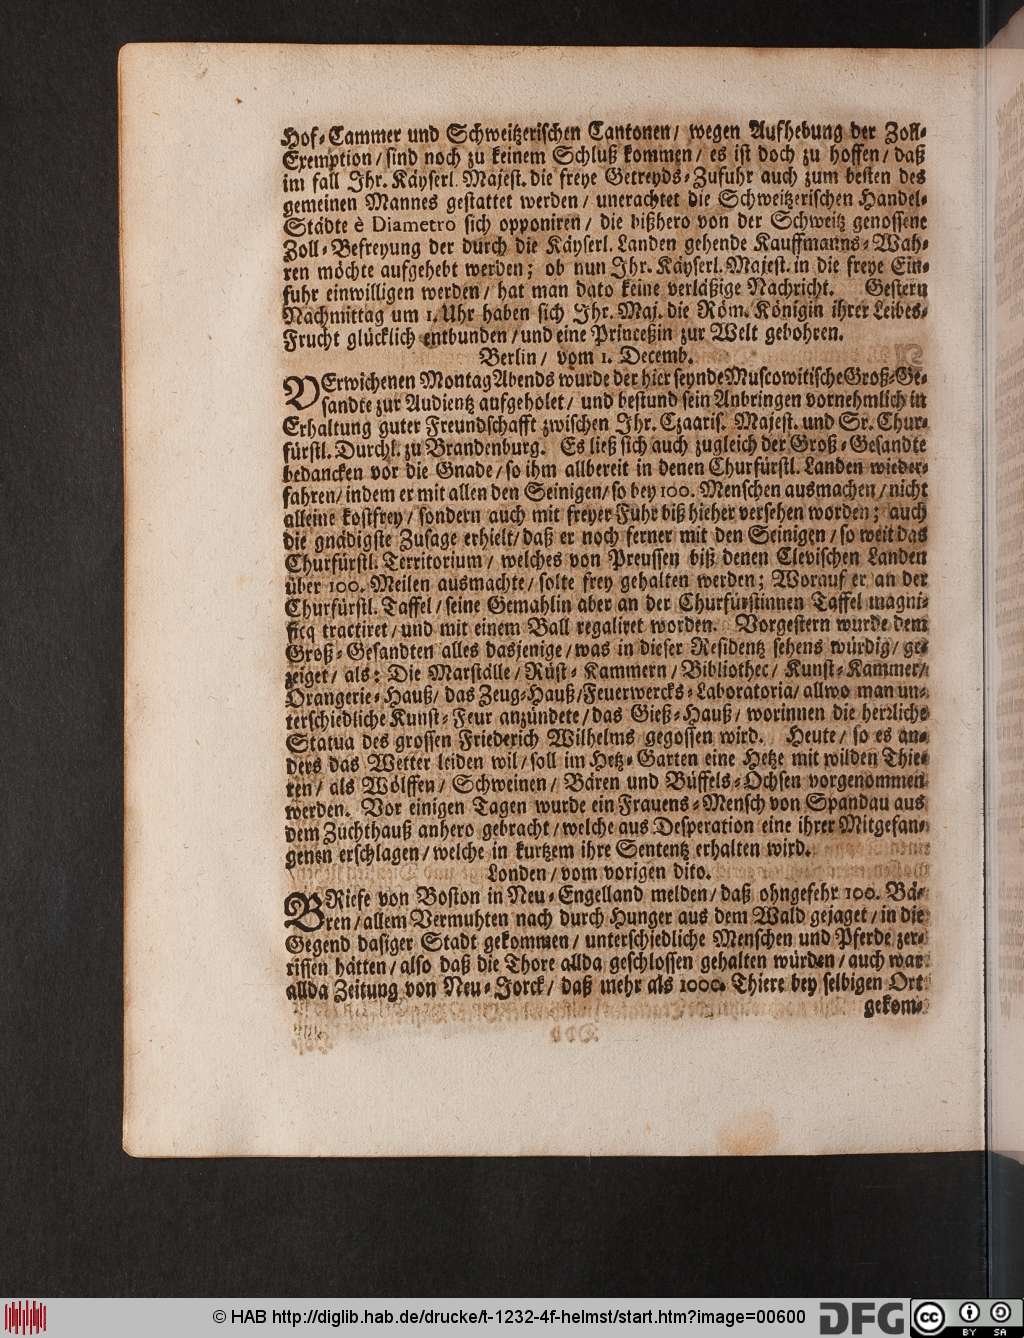 Hof-Cammer und Schweitzerischen Cantonen/ wegen Aufhebung der Zoll-
Exemption/ sind noch zu keinem Schluß kommen/ es ist doch zu hoffen/ daß
im fall Ihr. Käyserl. Majest. die freye Getreyds-Zufuhr auch zum besten des
gemeinen Mannes gestattet werden/ unerachtet die Schweitzerischen Handel-
Städte è Diametro sich opponiren/ die bißhero von der Schweitz genossene
Zoll-Befreyung der durch die Käyserl. Landen gehende Kauffmanns-Wah-
ren möchte aufgehebt werden; ob nun Ihr. Käyserl. Majest. in die freye Ein-
fuhr einwilligen werden/ hat man dato keine verläßige Nachricht. Gestern
Nachmittag um 1. Uhr haben sich Ihr. Maj. die Röm. Königin ihrer Leibes-
Frucht glücklich entbunden/ und eine Princeßin zur Welt gebohren.
Berlin/ vom 1. Decemb.
VErwichenen Montag Abends wurde der hier seynde Muscowitische Groß-Ge-
sandte zur Audientz aufgeholet/ und bestund sein Anbringen vornehmlich in
Erhaltung guter Freundschafft zwischen Ihr. Czaaris. Majest. und Sr. Chur-
fürstl. Durchl. zu Brandenburg. Es ließ sich auch zugleich der Groß-Gesandte
bedancken vor die Gnade/ so ihm allbereit in denen Churfürstl. Landen wieder-
fahren/ indem er mit allen den Seinigen/ so bey 100. Menschen ausmachen/ nicht
alleine kostfrey/ sondern auch mit freyer Fuhr biß hieher versehen worden; auch
die gnädigste Zusage erhielt/ daß er noch ferner mit den Seinigen/ so weit das
Churfürstl. Territorium/ welches von Preussen biß denen Clevischen Landen
über 100. Meilen ausmachte/ solte frey gehalten werden; Worauf er an der
Churfürstl. Taffel/ seine Gemahlin aber an der Churfürstinnen Taffel magni-
ficq tractiret/ und mit einem Ball regaliret worden. Vorgestern wurde dem
Groß-Gesandten alles dasjenige/ was in dieser Residentz sehens würdig/ ge-
zeiget/ als: Die Marställe/ Rüst-Kammern/ Bibliothec/ Kunst-Kammer/
Orangerie-Hauß/ das Zeug-Hauß/ Feuerwercks-Laboratoria/ allwo man un-
terschiedliche Kunst-Feur anzündete/ das Gieß-Hauß/ worinnen die herrliche
Statua des grossen Friederich Wilhelms gegossen wird. Heute/ so es an-
ders das Wetter leiden wil/ soll im Hetz-Garten eine Hetze mit wilden Thie-
ren/ als Wölffen/ Schweinen/ Bären und Büffels-Ochsen vorgenommen
werden. Vor einigen Tagen wurde ein Frauens-Mensch von Spandau aus
dem Zuchthauß anhero gebracht/ welche aus Desperation eine ihrer Mitgefan-
genen erschlagen/ welche in kurtzem ihre Sententz erhalten wird.
Londen/ vom vorigen dito.
BRiefe von Boston in Neu-Engelland melden/ daß ohngefehr 100. Bä-
ren/ allem Vermuhten nach durch Hunger aus dem Wald gejaget/ in die
Gegend dasiger Stadt gekommen/ unterschiedliche Menschen und Pferde zer-
rissen hätten/ also daß die Thore allda geschlossen gehalten würden/ auch war
allda Zeitung von Neu-Jorck/ daß mehr als 1000. Thiere bey selbigen Ort
gekom-
© HAB http://diglib.hab.de/drucke/t-1232-4f-helmst/start.htm?image=00600
DFG
cc
BY SA